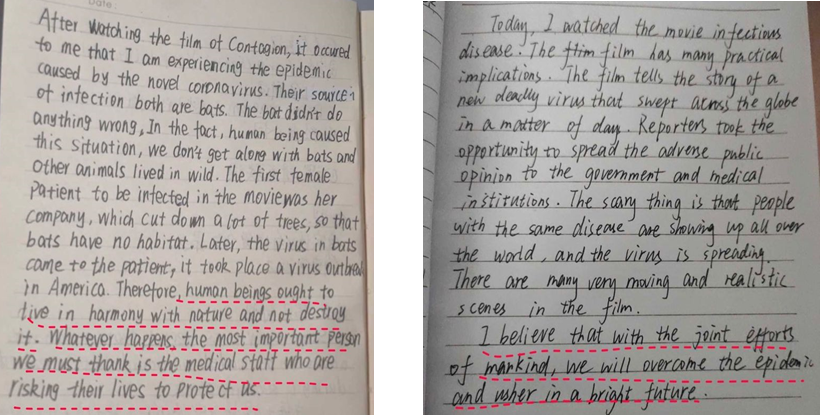 Date
After watching the film of Contagion, it occured
to me that I am experiencing the epidemic
caused by the novel coronavirus. Their source
of infection both are bats. The bat didn't do
anything wrong, In the fact, human being caused
this situation, we don't get along with bats and
other animals lived in wild. The first female
patient to be infected in the movie was her
company, which cut down a lot of trees, so that
bats have no habitat. Later, the virus in bats
came to the patient, it took place a virus outbrea
in America. Therefore, human beings ought to
live in harmony with nature and not destroy
it. Whatever happens, the most important person
we must thank is the medical staff who are
risking their lives to protect us.
Today, I watched the movie infectious
disease. The flim film has many practical
implications. The film tells the story of a
new deadly virus that swept across the globe
in a matter of day. Reporters took the
opportunity to spread the adverse public
opinion to the government and medical
institutions. The scary thing is that people
with the same disease are showing up all over
the world, and the virus is spreading.
There are many very moving and realistic
scenes in the film.
I believe that with the joint efforts
of mankind, we will overcome the epidemic
and usher in a bright future.